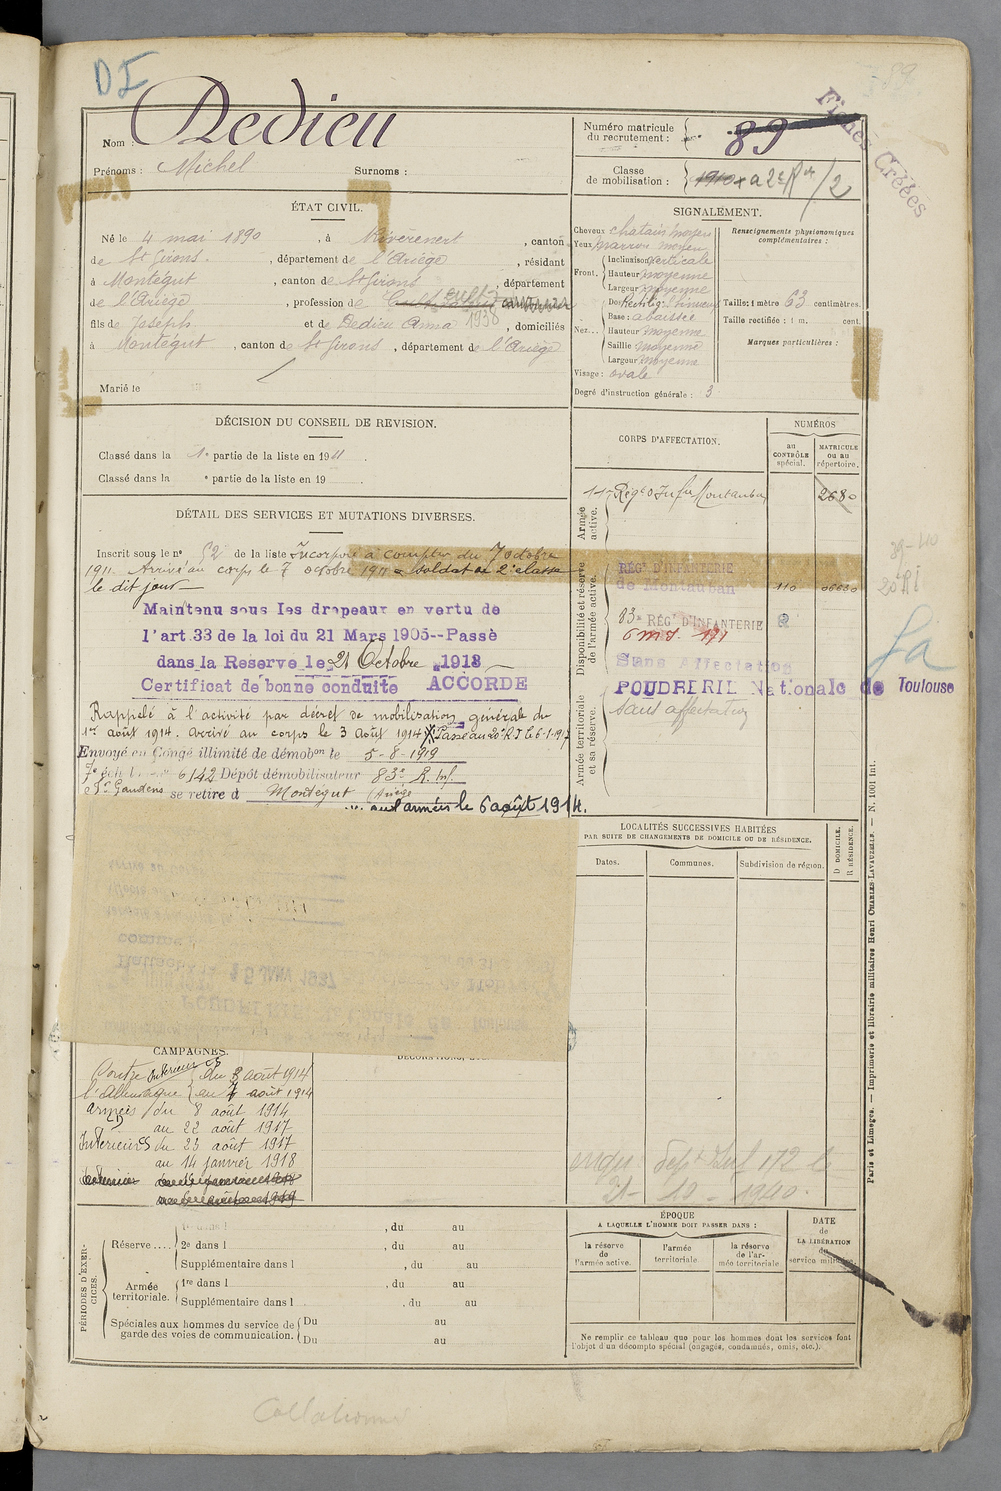 DI
Nom : Dedieu
Prénoms : Michel Surnoms :
Numéro matricule du recrutement : 89
Classe de mobilisation : 1910
Fiches Créées
ÉTAT CIVIL.
Né le 4 mai 1890, à Rivèrenert, canton
de St Girons, département de l'Ariège, résidant
à Montégut, canton de St Girons, département
de l'Ariège, profession de
fils de Joseph et de Dedieu Anna 1938, domiciliés
à Montégut, canton de St Girons, département de l'Ariège
Marié le
SIGNALEMENT.
Cheveux chatain moyen
Yeux marron moyen
Front. Inclinaison verticale
Hauteur moyenne
Largeur moyenne
Nez... Dos Rectilig. Sinueux
Base : abaissée
Hauteur moyenne
Saillie moyenne
Largeur moyenne
Visage : ovale
Degré d'instruction générale : 3
Renseignements physionomiques complémentaires :
Taille : 1 mètre 63 centimètres.
Taille rectifiée : 1 m. cent.
Marques particulières :
DÉCISION DU CONSEIL DE REVISION.
Classé dans la 1e partie de la liste en 1911.
Classé dans la e partie de la liste en 19
DÉTAIL DES SERVICES ET MUTATIONS DIVERSES.
Inscrit sous le n° 52 de la liste Incorporé à compter du 7 octobre
1911. Arrivé au corps le 7 octobre 1911 soldat de 2e classe
le dit jour
Maintenu sous les drapeaux en vertu de
l'art.33 de la loi du 21 Mars 1905--Passé
dans la Réserve le 21 Octobre 1913
Certificat de bonne conduite ACCORDE
Rappelé à l'activité par décret de mobilisation générale du
1er août 1914. Arrivé au corps le 3 Août 1914 X Passé au 20e R.I. le 6-1-1917
Envoyé en Congé illimité de démobon le 5-8-1919
7e éch 6142 Dépôt démobilisateur 83e R. Inf.
St Gaudens se retire à Montégut (Ariège
aux armées le 6 août 1914.
CORPS D'AFFECTATION.
NUMÉROS
au CONTRÔLE spécial.
MATRICULE ou au répertoire.
Armée active.
11e Régt d'Infie Montauban 2680
Disponibilité et réserve de l'armée active.
RÉGt D'INFANTERIE
de Montauban 110 06630
83e RÉGt D'INFANTERIE
Sans Affectation
POUDRERIE Nationale de Toulouse
Armée territoriale et sa réserve.
Sans affectation
20 RI
LOCALITÉS SUCCESSIVES HABITÉES
PAR SUITE DE CHANGEMENTS DE DOMICILE OU DE RÉSIDENCE.
Dates. Communes. Subdivision de région.
D DOMICILE.
R RÉSIDENCE.
Paris et Limoges. — Imprimerie et librairie militaires Henri CHARLES-LAVAUZELLE. — N. 1001 Int.
CAMPAGNES.
Contre Intérieur CS du 3 août 1914
l'Allemagne au 7 août 1914
armées du 8 août 1914
au 22 août 1917
Intérieur CS du 23 août 1917
au 14 janvier 1918
Dépt Inf 172 le
21 - 10 - 1940.
PÉRIODES D'EXERCICES.
Réserve.... 1re dans l , du au
2e dans l , du au
Supplémentaire dans l , du au
Armée territoriale. 1re dans l , du au
Supplémentaire dans l . du au
Spéciales aux hommes du service de garde des voies de communication. Du au
Du au
ÉPOQUE
A LAQUELLE L'HOMME DOIT PASSER DANS :
la réserve de l'armée active.
l'armée territoriale
la réserve de l'armée territoriale
DATE de LA LIBÉRATION du service militaire
Ne remplir ce tableau que pour les hommes dont les services font
l'objet d'un décompte spécial (engagés, condamnés, omis, etc.).
Collationné